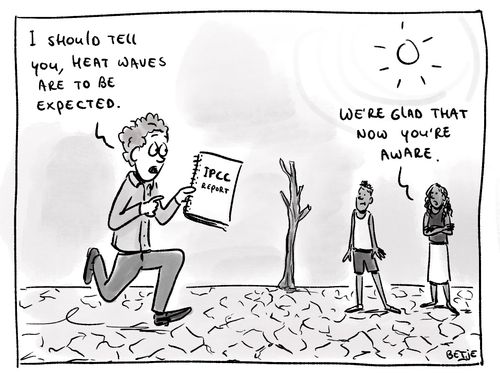 I SHOULD TELL
YOU, HEAT WAVES
ARE TO BE
EXPECTED.
IPCC
REPORT
WE'RE GLAD THAT
NOW YOU'RE
AWARE.
BETJE